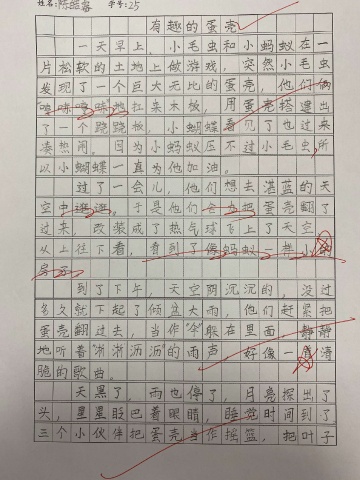 姓名:陈皓睿 学号:25
有趣的蛋壳
一天早上,小毛虫和小蚂蚁在一
片松软的土地上做游戏,突然小毛虫
发现了一个巨大无比的蛋壳,他们俩
"哼哧哼哧"地扛来木板,用蛋壳搭建出
了一个跷跷板,小蝴蝶看见了也过来
凑热闹。因为小蚂蚁压不过小毛虫,所
以小蝴蝶一直为他加油。
过了一会儿,他们想去湛蓝的天
空中逛逛。于是他们合力把蛋壳翻了
过来,改装成了热气球飞上了天空。
从上往下看,看到了像蚂蚁一样小的
房子。
到了下午,天空阴沉沉的,没过
多久就下起了倾盆大雨,他们赶紧把
蛋壳翻过去,当作"伞"躲在里面,静静
地听着"淅淅沥沥"的雨声,好像一首清
脆的歌曲。
天黑了,雨也停了,月亮探出了
头,星星眨巴着眼睛,睡觉时间到了
三个小伙伴把蛋壳当作摇篮,把叶子